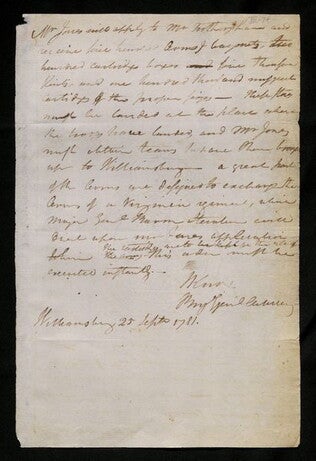 Mr Jones will apply to Mr Fotheringham and
receive five hundred Arms & bayonets, five
hundred cartridge boxes five thousand
flints and one hundred thousand musquet
cartridges of the proper sizes These
must be landed at the place where
the troops have landed and Mr Jones
must obtain teams to have them brought
up to Williamsburg a great part
of the Arms are designed to exchange the
Arms of a Virginia regiment, which
Major Genl Baron Steuben will
upon Mr Jones's application
This order must be
executed instantly
HKnox
Brig Genl Artillery
Williamsburg 25 Septr 1781.